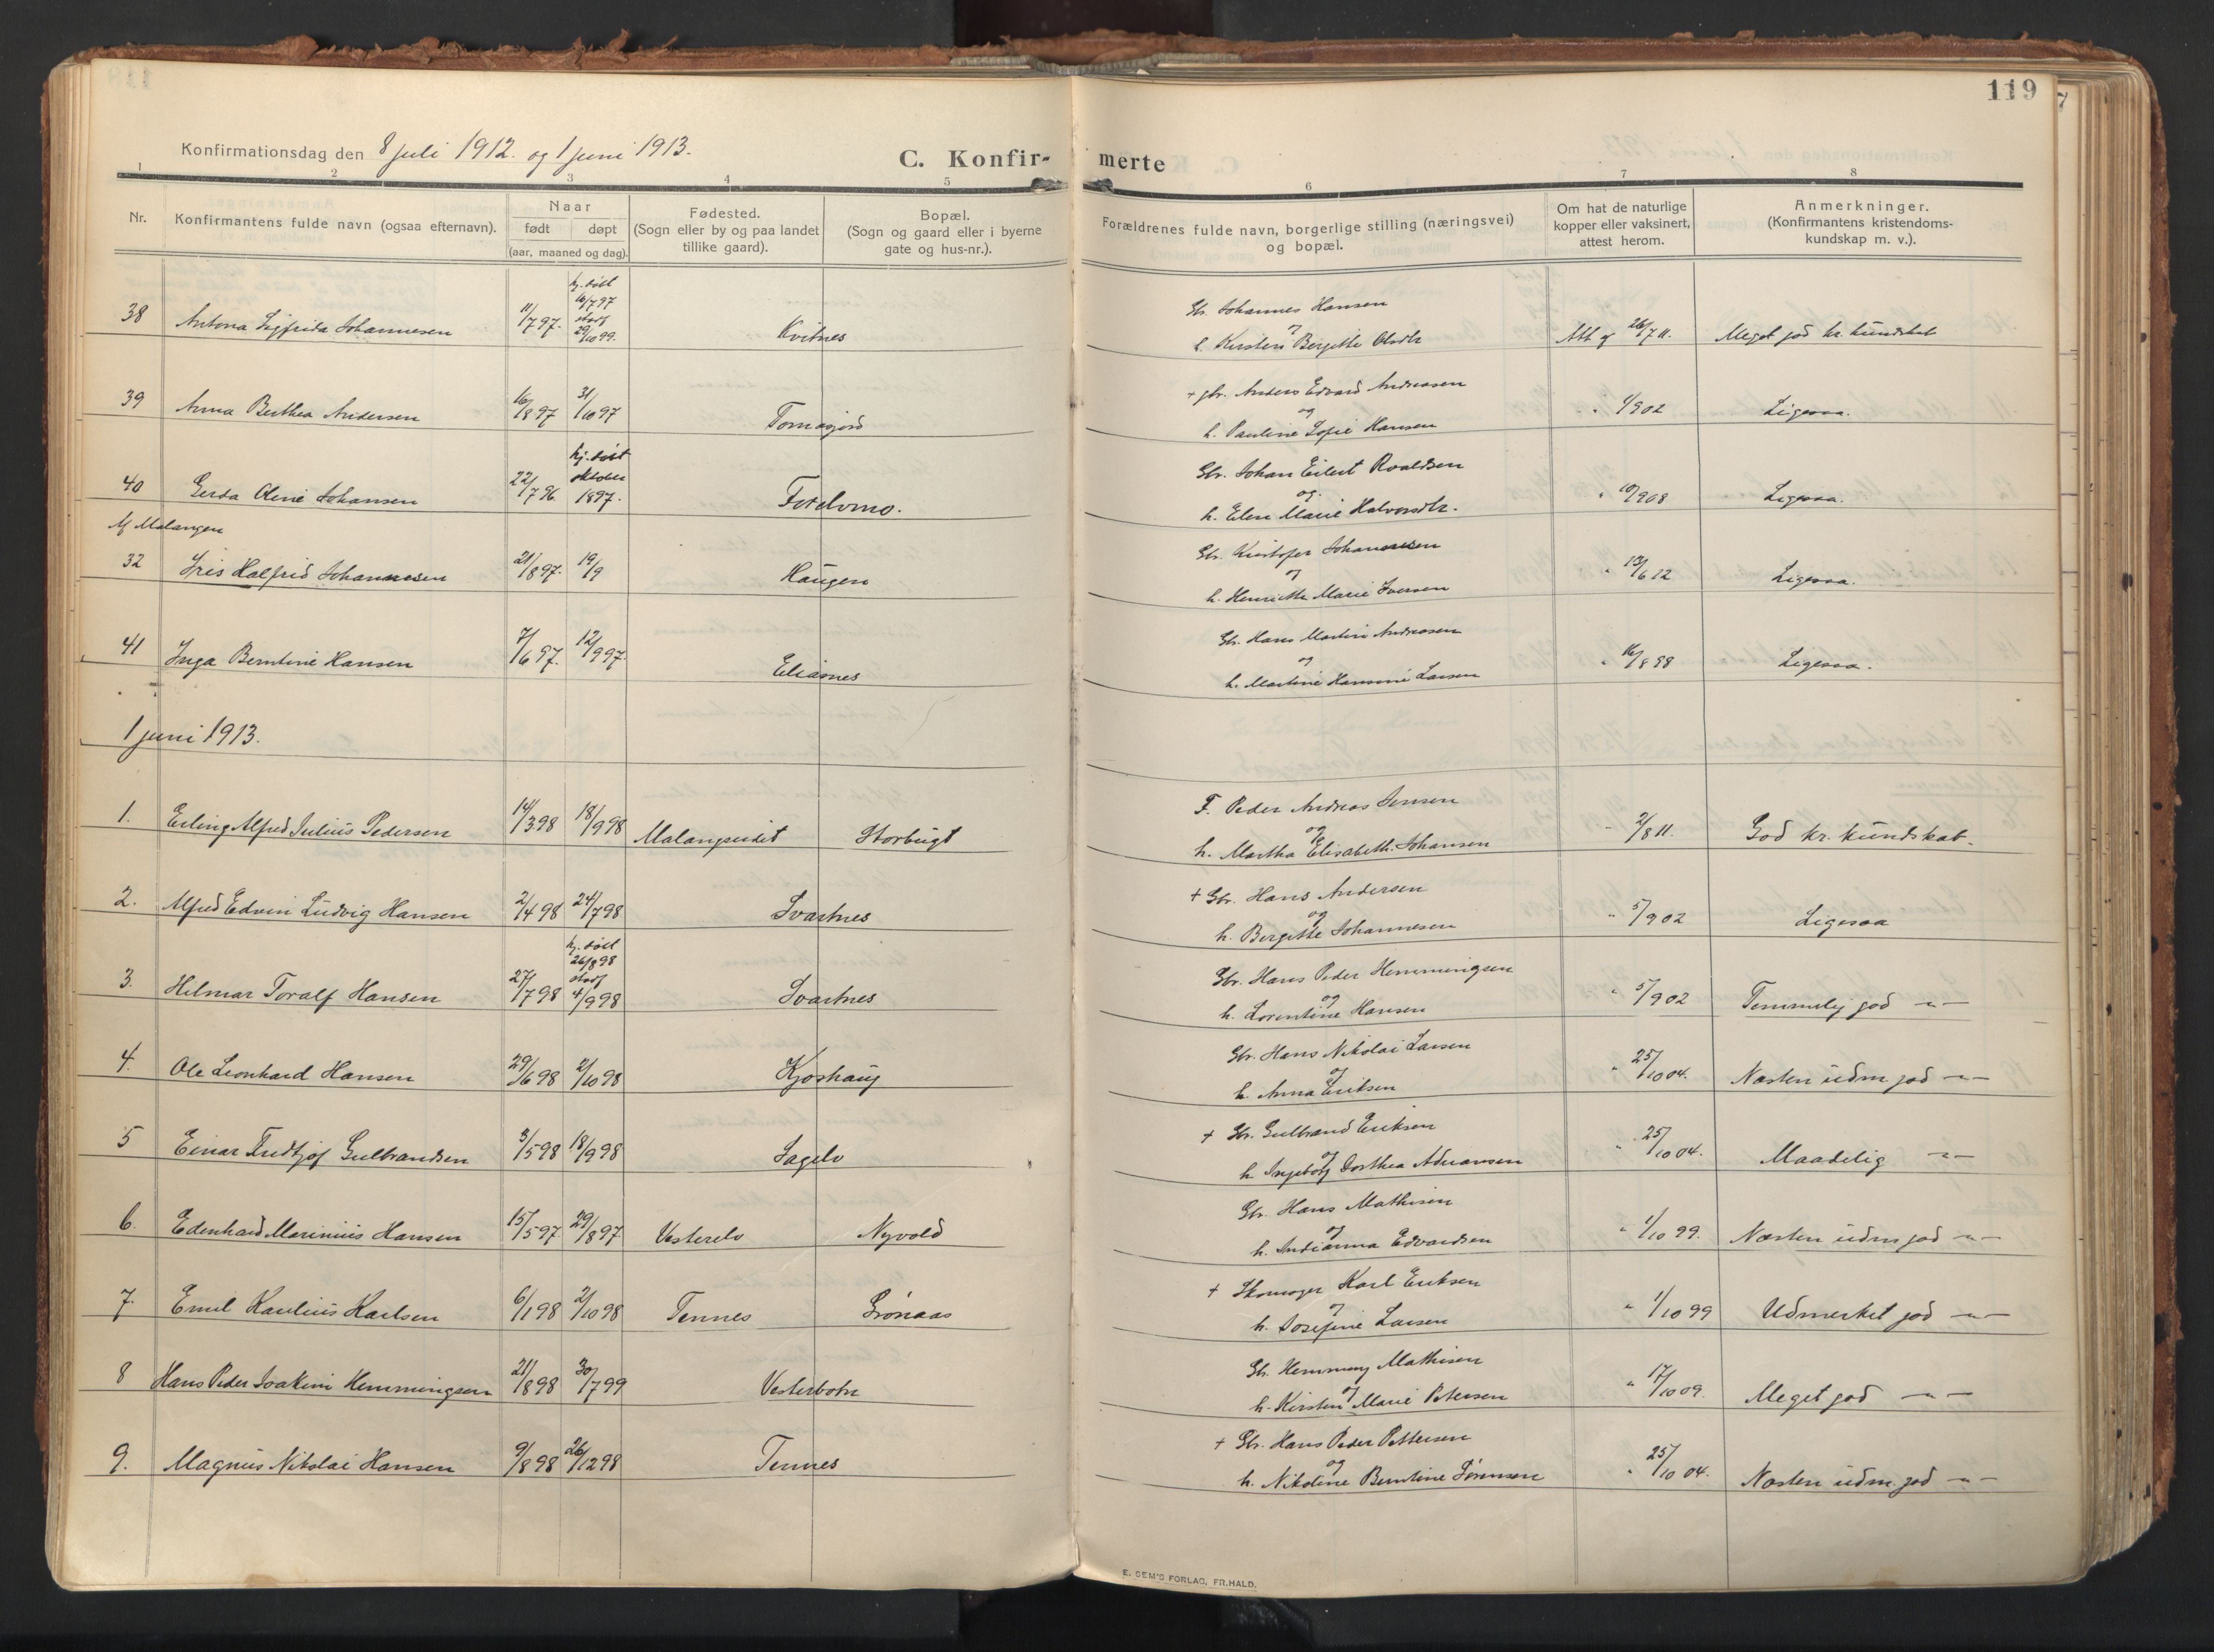 119
Konfirmationsdag den 8 juli 1912. og 1 juni 1913.
C. Konfir-
merte
1 2 3 4 5 6 7 8
Nr.
Konfirmantens fulde navn (ogsaa efternavn).
Naar
født døpt
(aar, maaned og dag).
Fødested.
(Sogn eller by og paa landet
tillike gaard).
Bopæl.
(Sogn og gaard eller i byerne
gate og hus-nr.).
Forældrenes fulde navn, borgerlige stilling (næringsvei)
og bopæl.
Om hat de naturlige
kopper eller vaksinert,
attest herom.
Anmerkninger.
(Konfirmantens kristendoms-
kundskap m. v.).
hj. døbt
16/7 97
stadf
38 Antona Sigfrida Johannesen 11/7 97. 29/10 99. Kvitnes
Gbr. Johannes Hansen
og
h. Kirsten Bergitte Olsdtr
26/7 11. Meget god kr. kundskab
39 Anna Berthea Andersen 16/8 97 31/10 97 Tomasjord
+ gbr. Anders Edvard Andreasen
og
h. Pauline Sofie Hansen
" 1/9 02 Ligesaa.
hj. døbt
oktober
40 Gerda Oline Johansen 22/7 96. 1897. Fordelmo.
Gbr. Johan Eilert Roaldsen
og
h. Elen Marie Halvorsdtr.
" 10/9 08 Ligesaa.
Af Malangen
32 Iris Halfrid Johannesen 21/8 97. 19/9 Haugen
Gbr. Kristofer Johannesen
og
h. Henriette Marie Iversen
" 13/6 12 Ligesaa.
41 Inga Berntine Hansen 7/6 97. 12/9 97. Eliasnes
Gbr. Hans Martin Andreasen
og
h. Martine Hansine Larsen
" 16/8 98 Ligesaa.
1 juni 1913.
1. Erling Alfred Julius Pedersen 14/3 98 18/9 98 Malangseidet Storbugt
F. Peder Andreas Jensen
og
h. Martha Elisabeth Johansen
" 2/8 11. God kr. kundskab.
2. Alfred Edvin Ludvig Hansen 2/4 98 24/7 98 Svartnes
+ Gbr. Hans Andersen
og
h. Bergitte Johannesen
" 5/9 02 Ligesaa
hj. døbt
26/8 98
stadf
3. Hilmar Toralf Hansen 27/7 98 4/9 98 Svartnes
Gbr. Hans Peder Hemmingsen
og
h. Lorentine Hansen
" 5/9 02 Temmelig god -"-
4. Ole Leonhard Hansen 29/6 98 2/10 98 Kjoshaug
Gbr. Hans Nikolai Larsen
og
h. Anna Eriksen
" 25/10 04. Næsten udm god -"-
5 Einar Fredtjof Gulbrandsen 3/5 98 18/9 98 Sagelv
+ Gbr. Gulbrand Eriksen
og
h Ingeborg Dorthea Adriansen
" 25/10 04. Maadelig -"-
6. Edenhard Marinius Hansen 15/5 97 29/8 97 Vesterelv Nyvold
Gbr. Hans Mathisen
og
h. Indianna Edvardsen
" 1/10 99. Næsten udm god -"-
7. Emil Kaulius Karlsen 6/1 98 2/10 98 Tennes Grønaas
+ Skomager Karl Eriksen
og
h. Josefine Larsen
" 1/10 99 Udmerket god -"-
8 Hans Peder Joakim Hemmingsen 21/8 98 30/7 99 Vesterbotn
Gbr. Hemming Mathisen
og
h. Kirsten Marie Petersen
" 17/10 09. Meget god -"-
9. Magnus Nikolai Hansen 9/8 98 26/12 98 Tennes
+ Gbr. Hans Peder Pettersen
og
h. Nikoline Berntine Sørensen
" 25/10 04. Næsten udm god -"-
E. SEM'S FORLAG, FR.HALD.